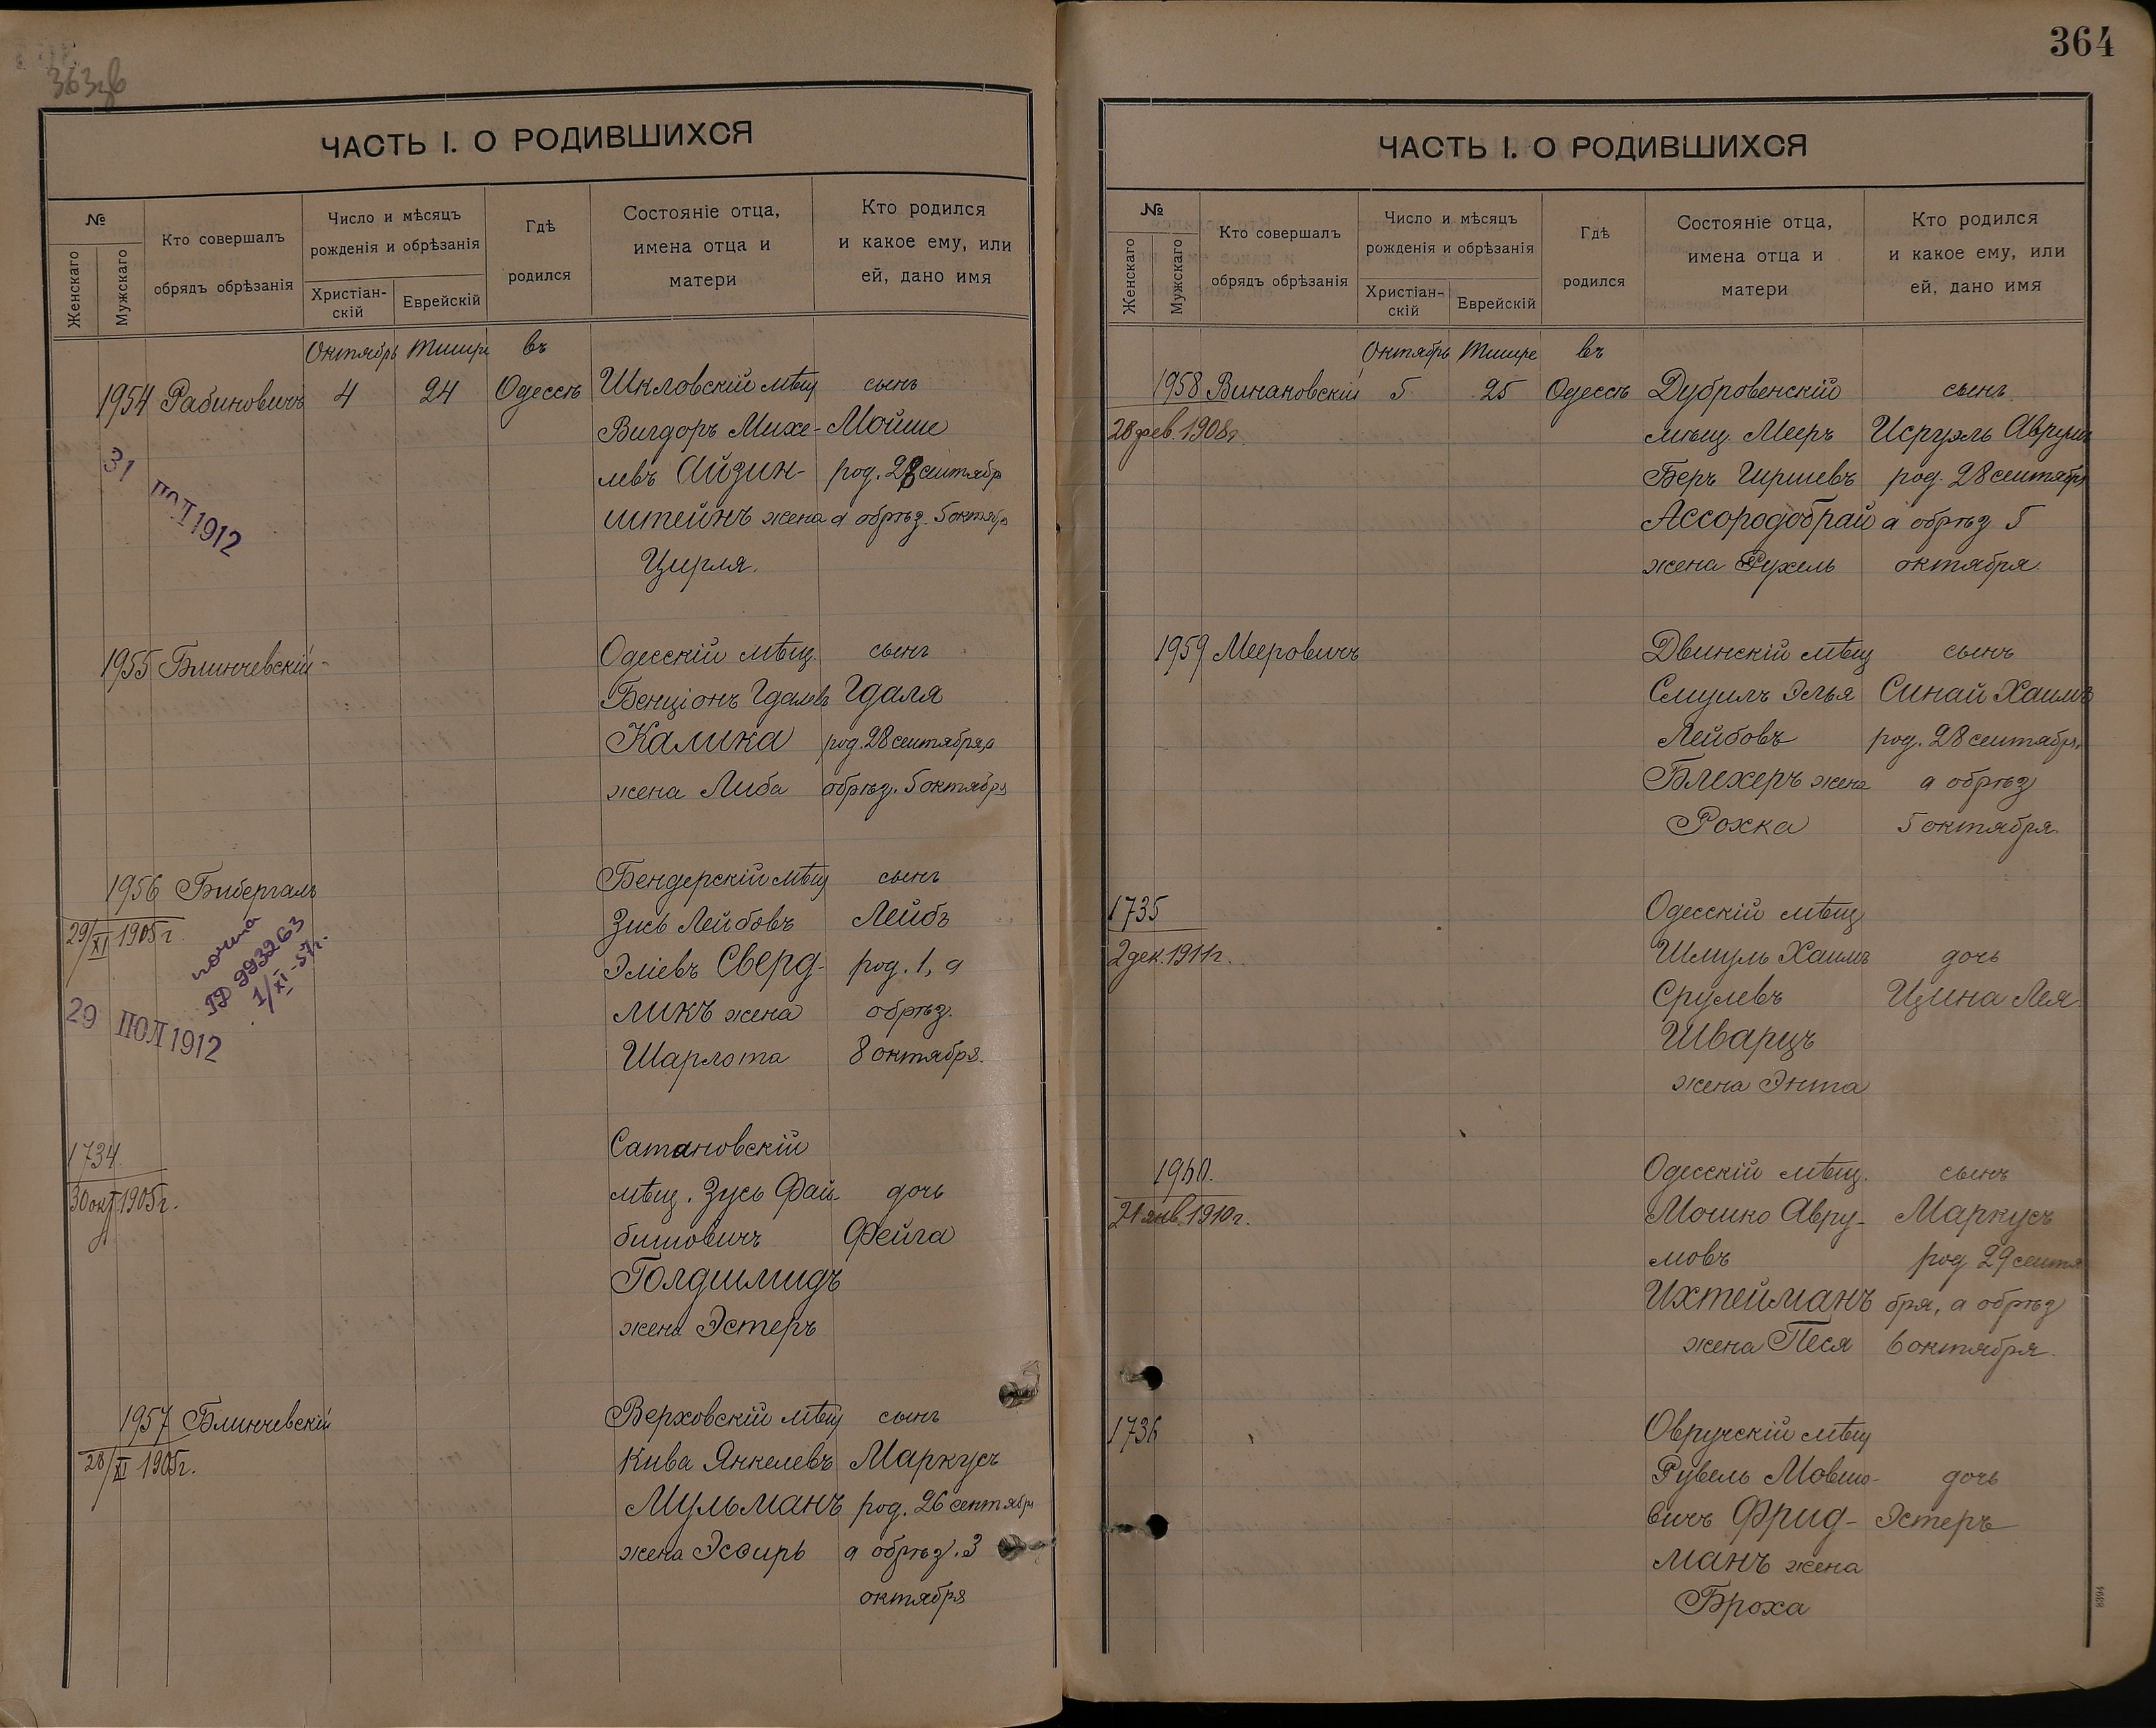 363 об
ЧАСТЬ I. О РОДИВШИХСЯ
№
Женскаго
Мужскаго
Кто совершалъ
обрядъ обрѣзанія
Число и мѣсяцъ
рожденія и обрѣзанія
Христіан-
скій
Еврейскій
Гдѣ
родился
Состояніе отца,
имена отца и
матери
Кто родился
и какое ему, или
ей, дано имя
Октябрь Тишри въ
1954 Рабиновичъ 4 24 Одессѣ Шкловскій мѣщ сынъ
Вигдоръ Михе- Мойше
левъ Айзин- род. 28 сентября
штейнъ жена а обрѣз. 5 октября
Цирля.
31 ІЮЛ 1912
1955 Блинчевскій Одесскій мѣщ. сынъ
Бенціонъ Гдалевъ Гдаля
Калика род. 28 сентября, а
жена Либа обрѣз. 5 октября
1956 Бибергаль Бендерскій мѣщ сынъ
29/XI 1905 г. Зись Лейбовъ Лейбъ
Эліевъ Сверд- род. 1, а
ликъ жена обрѣз.
Шарлота 8 октября.
почта
993263
1/XI-57г.
29 ІЮЛ 1912
1734 Сатановскій
30 окт 1905 г. мѣщ. Зусь Фай- дочь
бишовичъ Фейга
Голдшмидъ
жена Эстеръ
1957 Блинчевскій Верховскій мѣщ сынъ
28/XI 1905г. Кива Янкелевъ Маркусъ
Мульманъ род. 26 сентября
жена Эсѳирь а обрѣз. 3
октября
364
ЧАСТЬ I. О РОДИВШИХСЯ
№
Женскаго
Мужскаго
Кто совершалъ
обрядъ обрѣзанія
Число и мѣсяцъ
рожденія и обрѣзанія
Христіан-
скій
Еврейскій
Гдѣ
родился
Состояніе отца,
имена отца и
матери
Кто родился
и какое ему, или
ей, дано имя
Октябрь Тишре въ
1958 Винаковскій 5 25 Одессѣ Дубровенскій сынъ
28 фев. 1908г. мѣщ. Мееръ Исруэль Аврумъ
Беръ Гиршевъ род. 28 сентября
Ассородобрай а обрѣз 5
жена Рухель октября.
1959 Мееровичъ Двинскій мѣщ сынъ
Смуилъ Элья Синай Хаимъ
Лейбовъ род. 28 сентября,
Блехеръ жена а обрѣз
Рохка 5 октября.
1735 Одесскій мѣщ
2 дек. 1911г. Шмуль Хаимъ дочь
Срулевъ Цина Лея
Шварцъ
жена Энта
1960. Одесскій мѣщ. сынъ
21 янв. 1910г. Мошко Авру- Маркусъ
мовъ род 29 сентя
Ихтейманъ бря, а обрѣз
жена Песя 6 октября.
1736 Овручскій мѣщ
Рувель Мовшо- дочь
вичъ Фрид- Эстеръ
манъ жена
Броха
8394